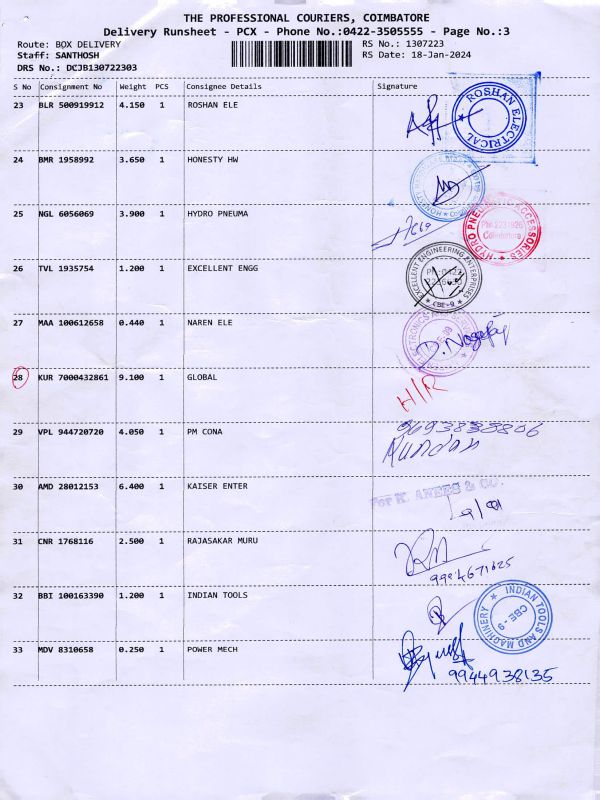 THE PROFESSIONAL COURIERS, COIMBATORE
Delivery Runsheet - PCX - Phone No.:0422-3505555 - Page No.:3
Route: BOX DELIVERY RS No.: 1307223
Staff: SANTHOSH RS Date: 18-Jan-2024
DRS No.: DCJB130722303
S No Consignment No Weight PCS Consignee Details Signature
23 BLR 500919912 4.150 1 ROSHAN ELE
ROSHAN ELECTRICAL
24 BMR 1958992 3.650 1 HONESTY HW
25 NGL 6056069 3.900 1 HYDRO PNEUMA
HYDRO PNEUMATIC ACCESSORIES
Ph: 2231926
Coimbatore
26 TVL 1935754 1.200 1 EXCELLENT ENGG
EXCELLENT ENGINEERING ENTERPRISES
PH:0422
CBE-9
27 MAA 100612658 0.440 1 NAREN ELE
28 KUR 7000432861 9.100 1 GLOBAL
H/R
29 VPL 944720720 4.050 1 PM CONA
Kundan
30 AMD 28012153 6.400 1 KAISER ENTER
For K. ANEES & CO.
31 CNR 1768116 2.500 1 RAJASAKAR MURU
9994671625
32 BBI 100163390 1.200 1 INDIAN TOOLS
INDIAN TOOLS AND MACHINERY
CBE-9
33 MDV 8310658 0.250 1 POWER MECH
9944938135